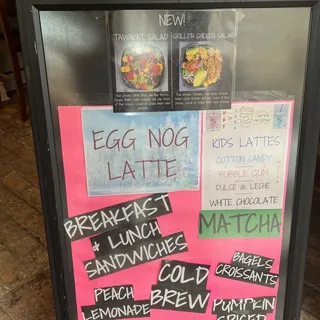 NEW!
TAWOOST SALAD
GRILLED CHICKEN SALAD
EGG NOG
LATTE
KIDS LATTES
COTTON CANDY
BUBBLE GUM
DULCE de LECHE
WHITE CHOCOLATE
MATCHA
BREAKFAST
& LUNCH
SANDWICHES
BAGELS
CROISSANTS
COLD
BREW
PEACH
LEMONADE
PUMPKIN
SPICED